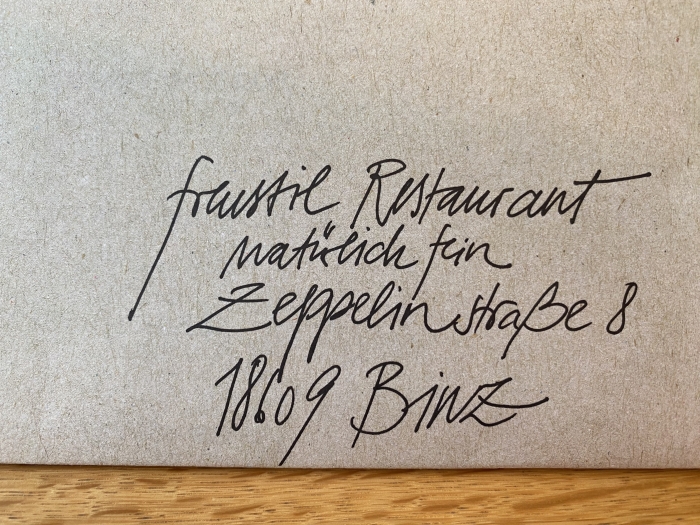 freustil Restaurant
natürlich fein
Zeppelinstraße 8
18609 Binz